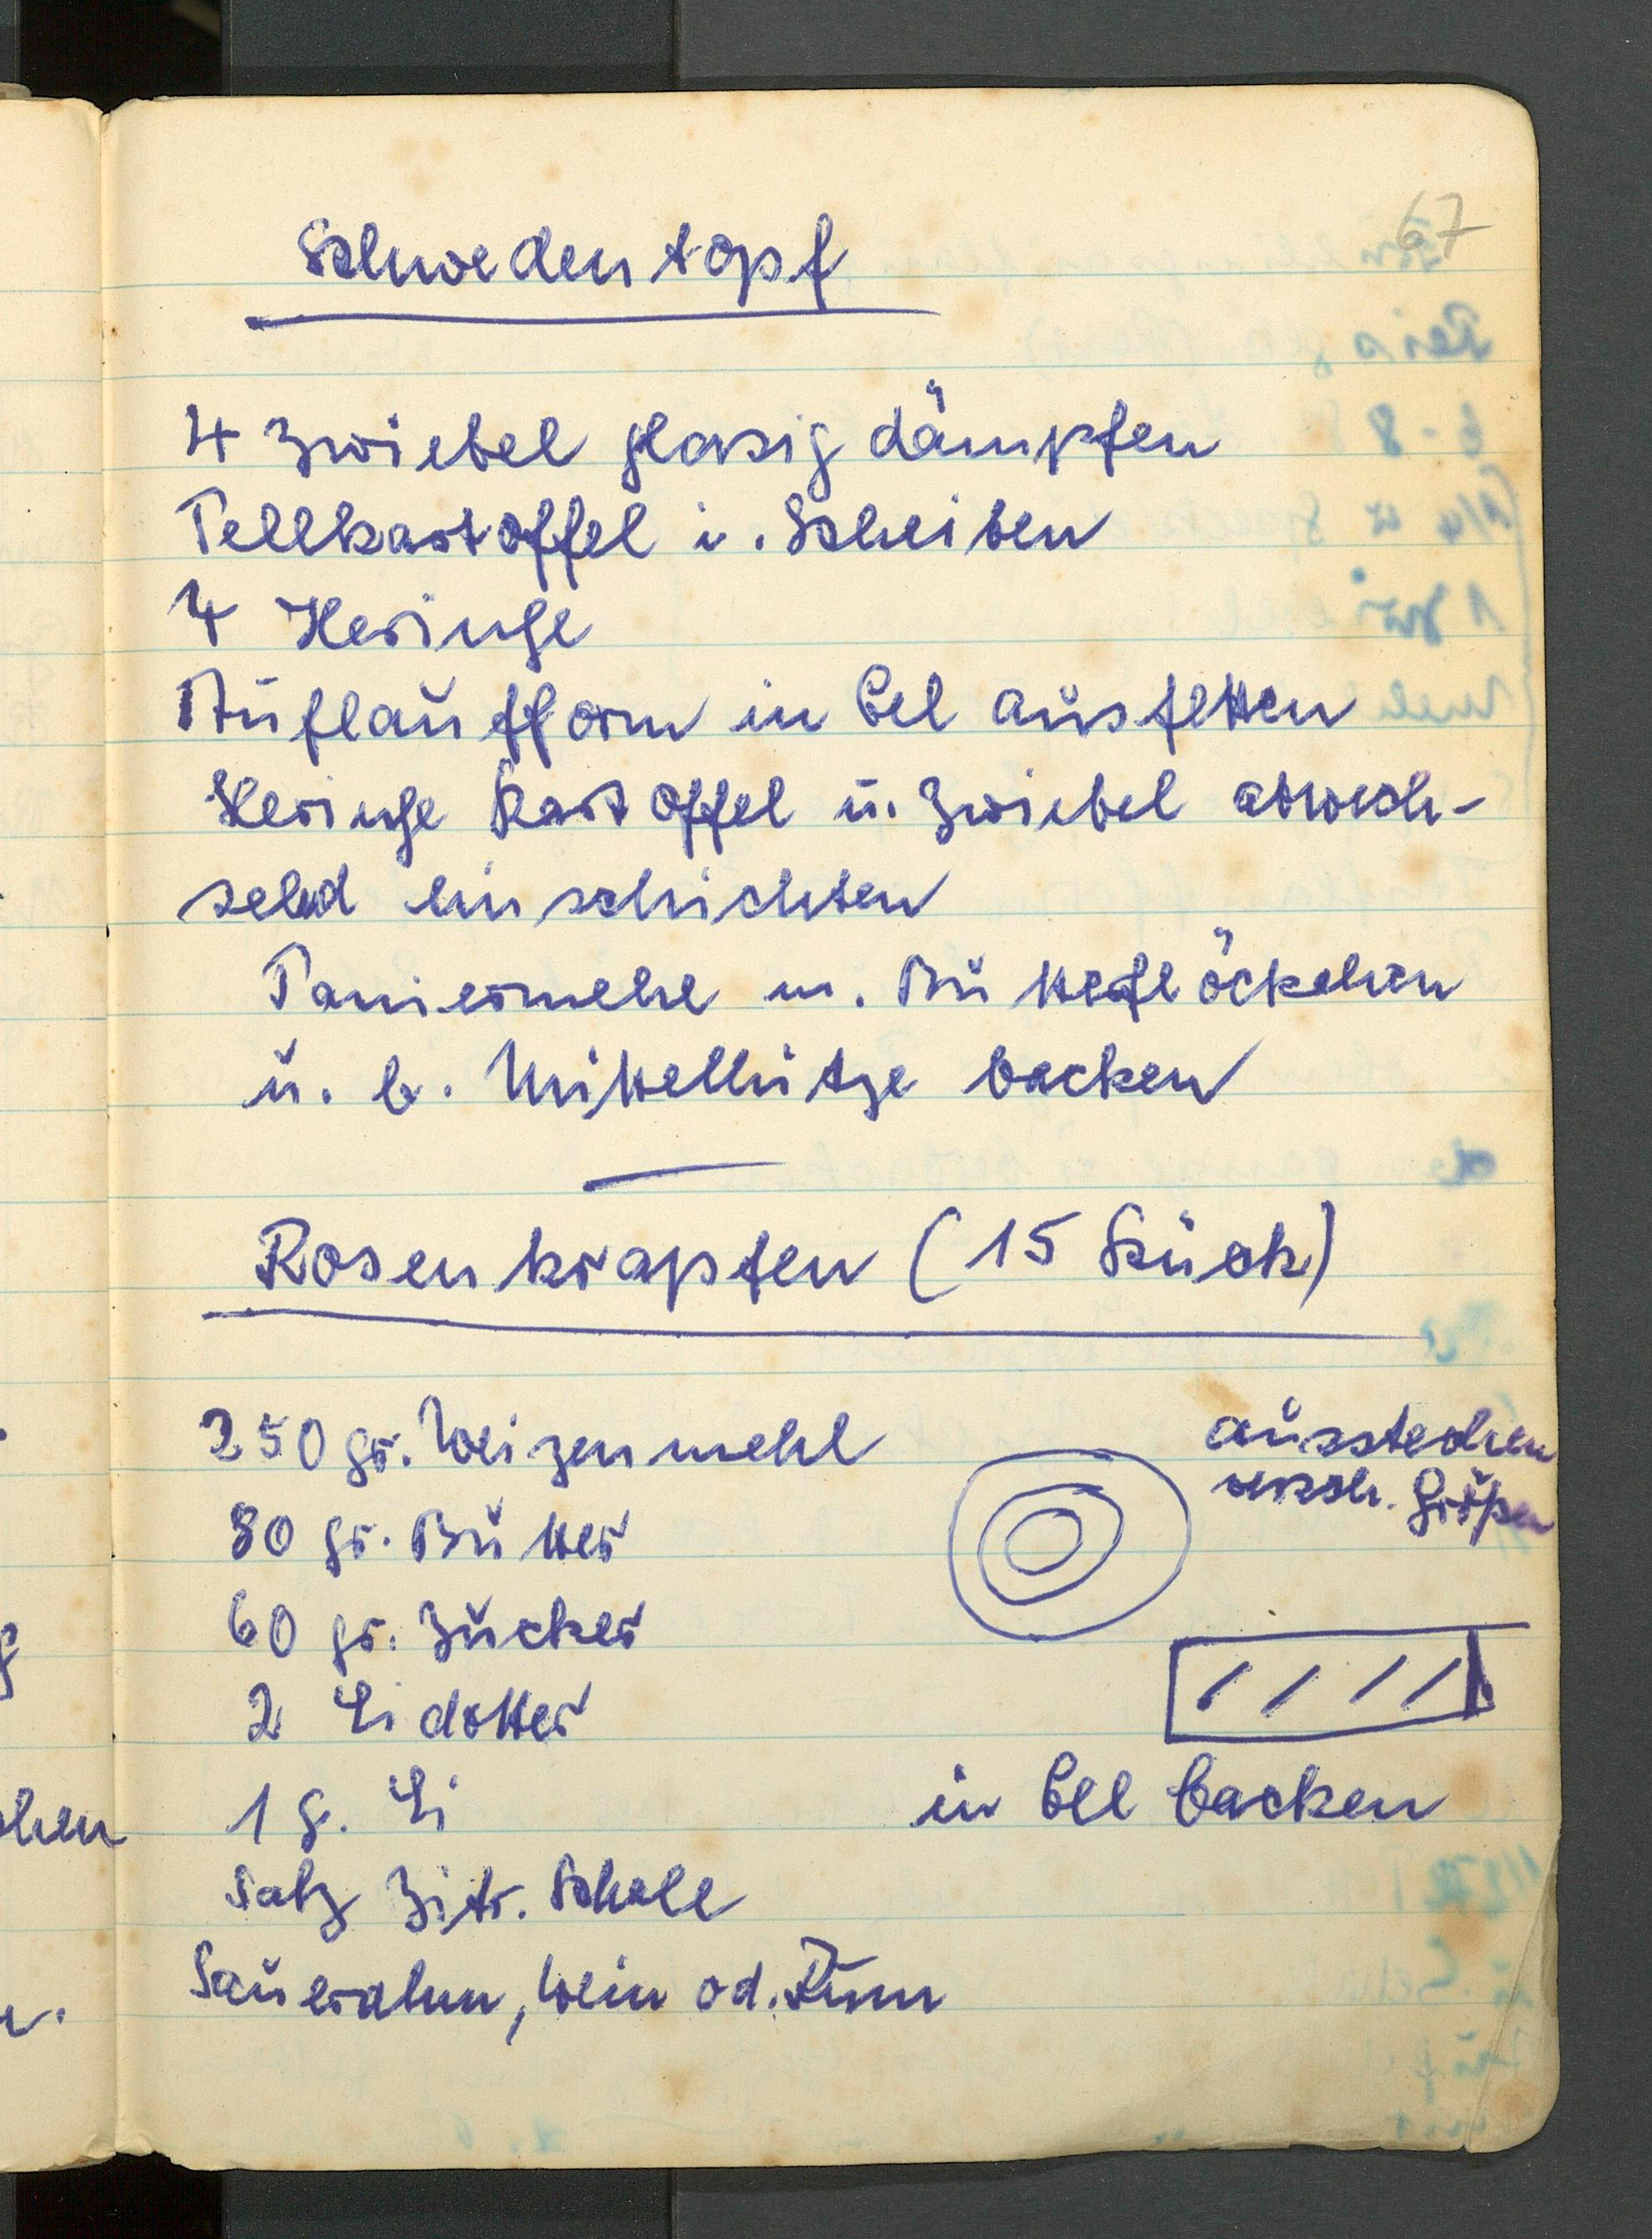 67
Schwedentopf
4 Zwiebel glasig dämpfen
Pellkartoffel i. Scheiben
4 Heringe
Auflaufform in Oel ausfetten
Heringe Kartoffel u. Zwiebel abwech-
selnd einschichten
Paniermehl m. Butterflöckchen
u. b. Mittelhitze backen
Rosenkrapfen (15 Stück)
250 gr. Weizenmehl
80 gr. Butter
60 gr. Zucker
2 Eidotter
1 g. Ei
Salz Zitr. Schale
Sauerrahm, Wein od. Rum
ausstechen
versch. Größen
in Oel backen